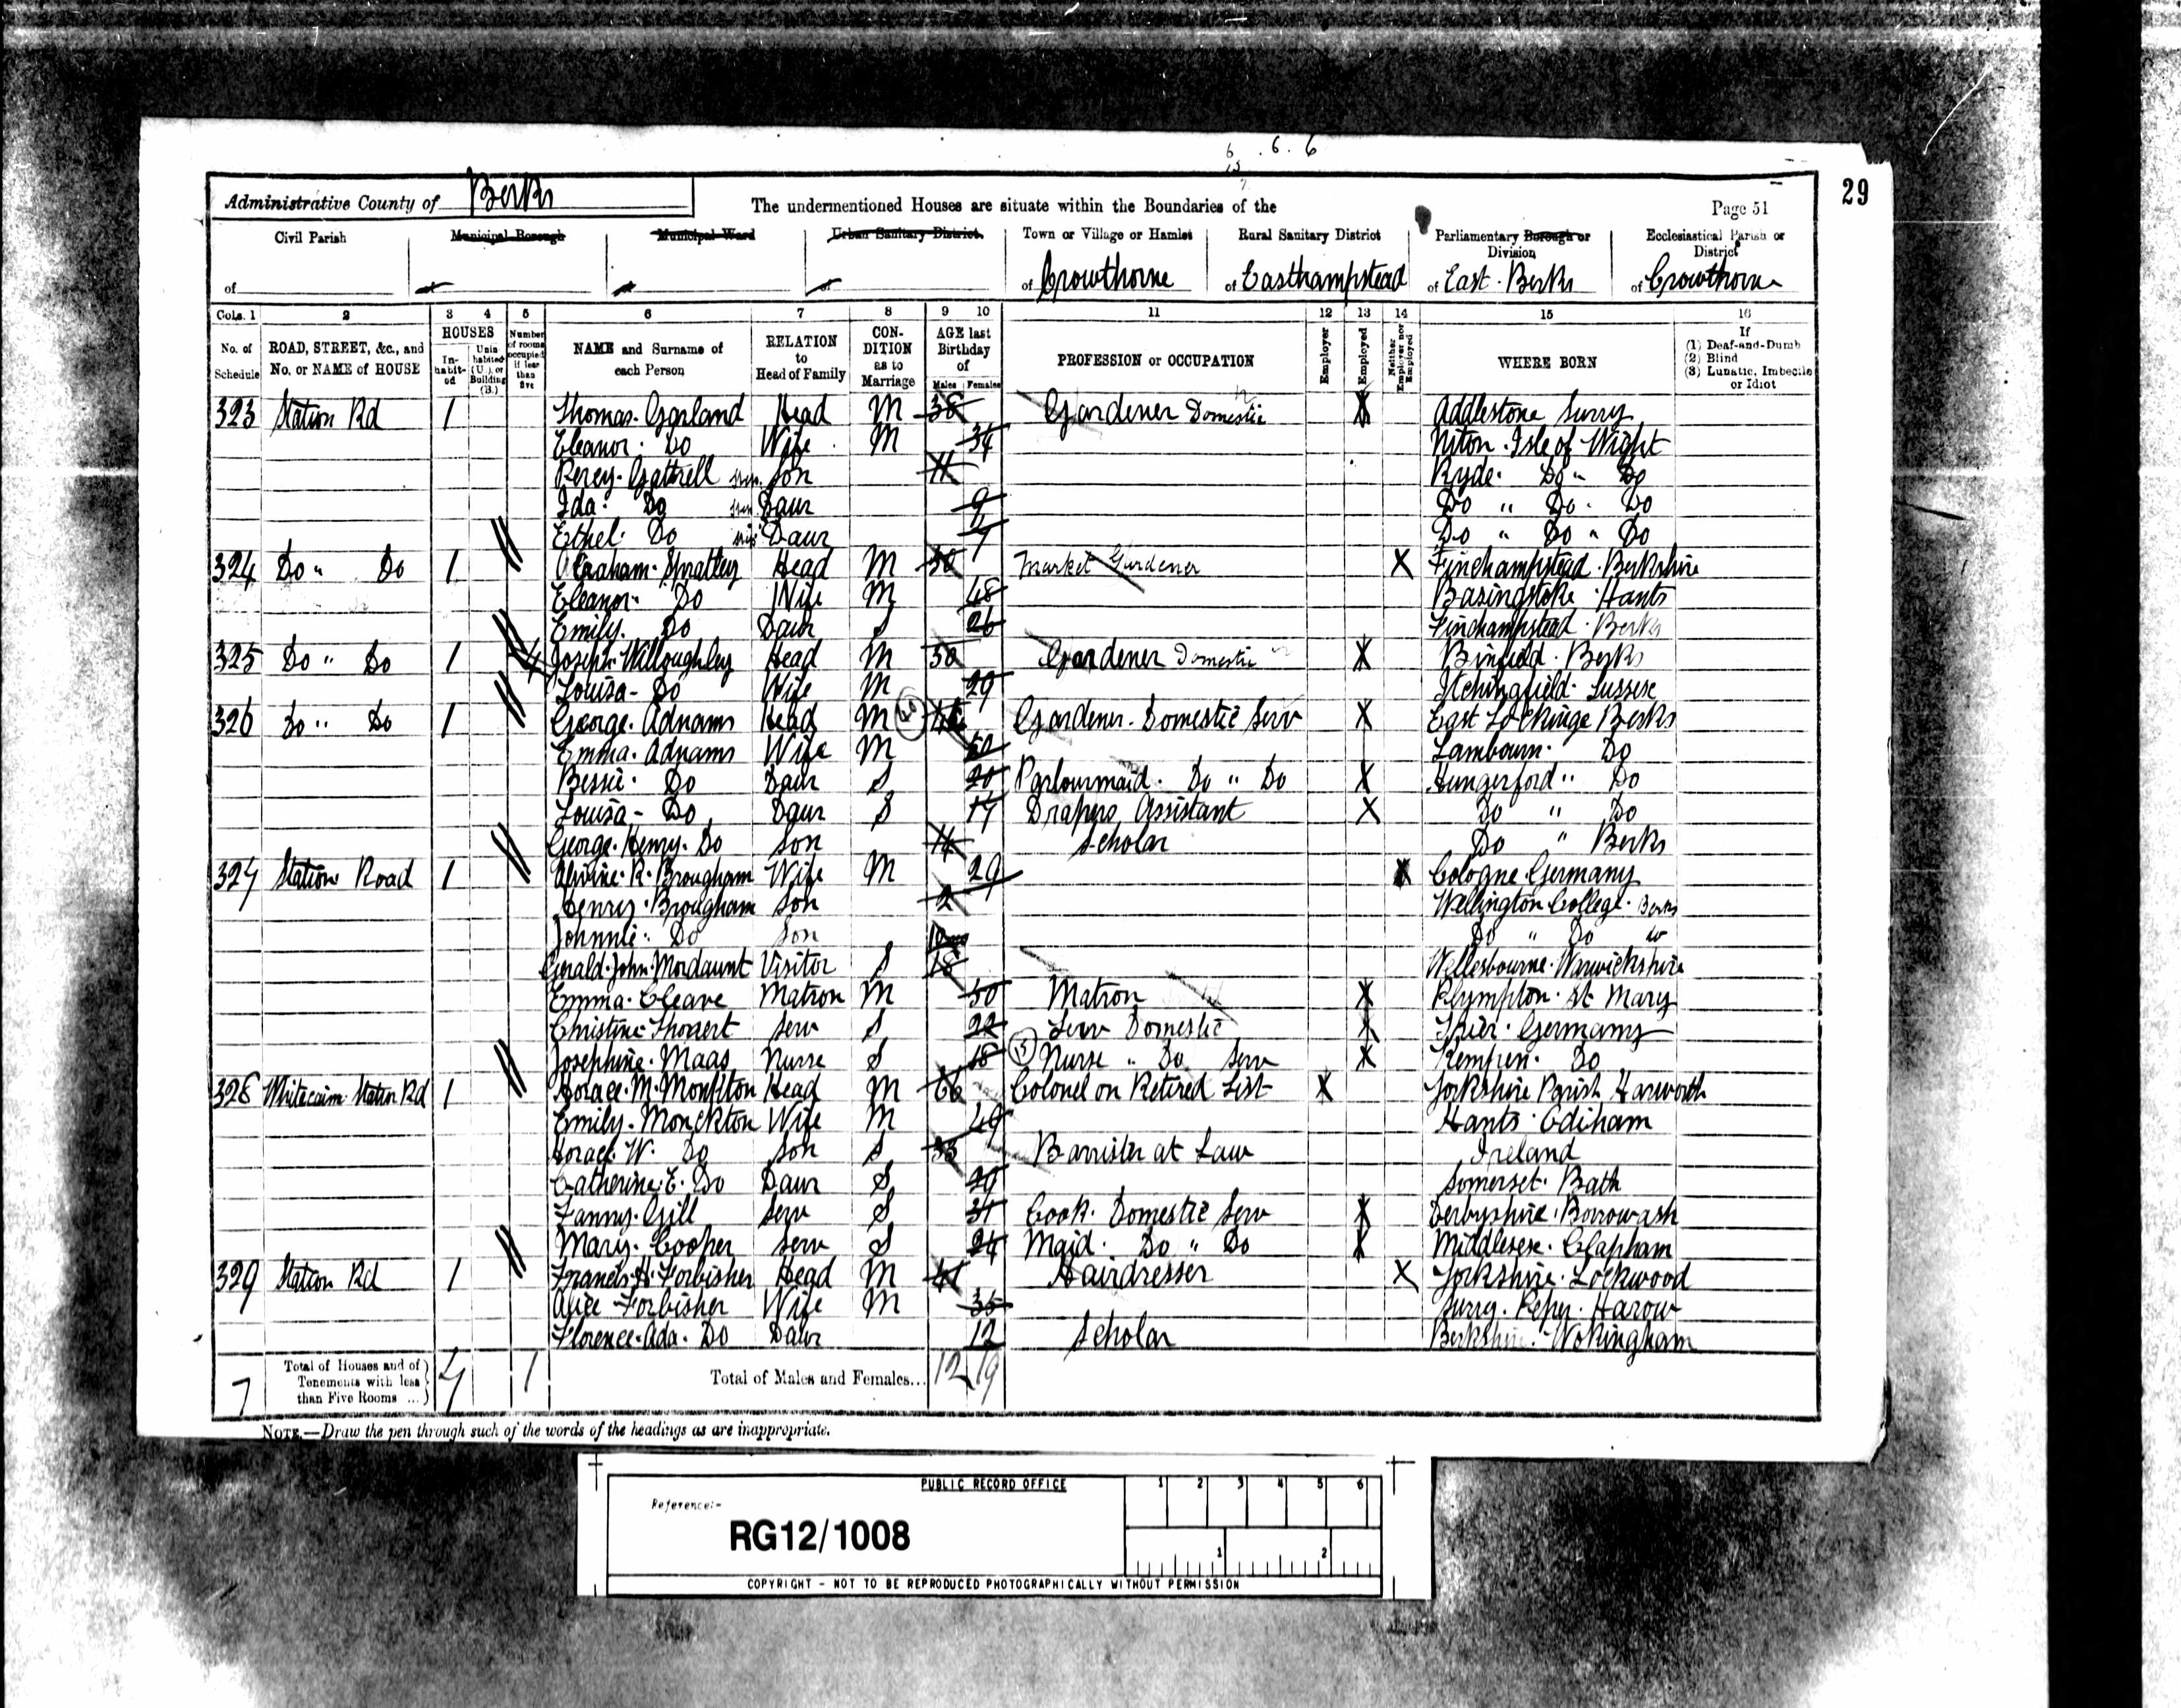 6 . 6 . 6
29
Administrative County of Berks
The undermentioned Houses are situate within the Boundaries of the
Page 51
Civil Parish
Municipal Borough
Municipal Ward
Urban Sanitary District
Town or Village or Hamlet
Rural Sanitary District
Parliamentary Borough or Division
Ecclesiastical Parish or District
of
of
of Crowthorne
of Easthampstead
of East Berks
of Crowthorne
Cols. 1 2 3 4 5 6 7 8 9 10 11 12 13 14 15 16
No. of Schedule
ROAD, STREET, &c., and No. or NAME of HOUSE
HOUSES
In-habit-ed
Unin-habited (U.), or Building (B.)
Number of rooms occupied if less than five
NAME and Surname of each Person
RELATION to Head of Family
CON-DITION as to Marriage
AGE last Birthday of
Males Females
PROFESSION or OCCUPATION
Employer
Employed
Neither Employer nor Employed
WHERE BORN
If
(1) Deaf-and-Dumb
(2) Blind
(3) Lunatic, Imbecile or Idiot
323 Station Rd 1 Thomas Garland Head M 38 Gardener Domestic X Addlestone Surry
Eleanor Do Wife M 34 Niton Isle of Wight
Percy Gattrell Son 11 Ryde Do " Do
Ida Do Daur 9 Do " Do Do
Ethel Do Daur 7 Do " Do " Do
324 Do " Do 1 Smatley Head M 50 Market Gardener X Finchampstead Berkshire
Eleanor Do Wife M 48 Basingstoke Hants
Emily Do Daur S 26 Finchampstead Berks
325 Do " Do 1 4 Joseph Willoughley Head M 30 Gardener Domestic X Binfield Berks
Louisa Do Wife M 29 Itchingfield Sussex
326 Do " Do 1 George Adnams Head M Gardener Domestic Serv X East Lockinge Berks
Emma Adnams Wife M 50 Lambourn Do
Bessie Do Daur S 20 Parlourmaid Do " Do X Hungerford " Do
Louisa Do Daur S 17 Drapers Assistant X Do " Do
George Henry Do Son 14 Scholar Do " Berks
327 Station Road 1 R. Brougham Wife M 29 X Cologne Germany
Henry Brougham Son 2 Wellington College Berks
Johnnie Do Son 10 mo Do " Do
Gerald John Mordaunt Visitor S 18 Wellesbourne Warwickshire
Emma Cleave Matron M 50 Matron X Plympton St Mary
Christine Serv S 22 Serv Domestic X Trier Germany
Josephine Maas Nurse S 18 Nurse " Do Serv X Kempen Do
328 Station Rd 1 Horace M. Monckton Head M 66 Colonel on Retired List X Yorkshire Parish Harworth
Emily Monckton Wife M 49 Hants Odiham
Horace W. Do Son S 33 Barrister at Law Ireland
Catherine E. Do Daur S 29 Somerset Bath
Fanny Gill Serv S 31 Cook Domestic Serv X Derbyshire Borrowash
Mary Cooper Serv S 24 Maid Do " Do X Middlesex Clapham
329 Station Rd 1 Francis H. Forbisher Head M 41 Hairdresser X Yorkshire Lockwood
Alice Forbisher Wife M 35 Surry Peper Harow
Florence Ada Do Daur 12 Scholar Berkshire Wokingham
7 Total of Houses and of Tenements with less than Five Rooms ... 7 1 Total of Males and Females... 12 19
NOTE.—Draw the pen through such of the words of the headings as are inappropriate.
PUBLIC RECORD OFFICE
1 2 3 4 5 6
Reference:-
RG12/1008
1 2
COPYRIGHT - NOT TO BE REPRODUCED PHOTOGRAPHICALLY WITHOUT PERMISSION